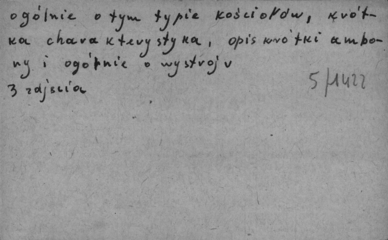 ogólnie o tym typie kościołów, krót-
ka charakterystyka, opis krótki ambo-
ny i ogólnie o wystroju
5/1422
3 zdjęcia